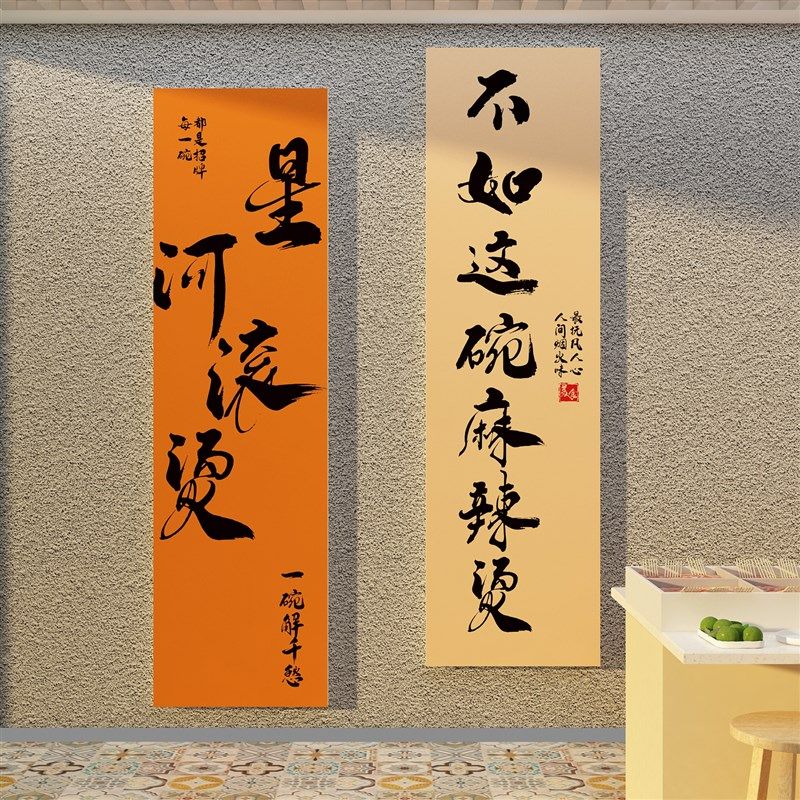 每一碗
都是招牌
星河滚烫
一碗解千愁
不如这碗麻辣烫
人间烟火味
最抚凡人心